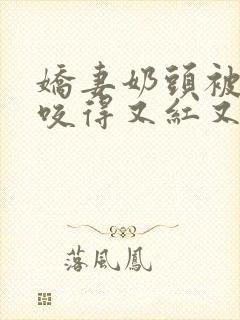 嬌妻奶頭被
咬得又紅又
落風鳳